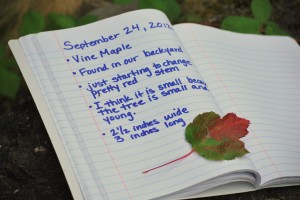 September 24, 201
• Vine Maple
• Found in our backyard
• just starting to change
pretty red stem
• I think it is small beca
the tree is small and
young.
• 2½ inches wide
3 inches long